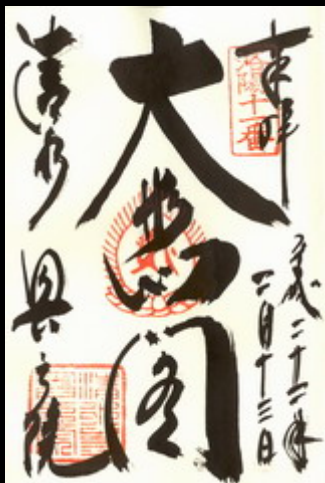 奉拝
洛陽十一番
平成二十二年
二月十三日
大悲閣
清水 奥之院